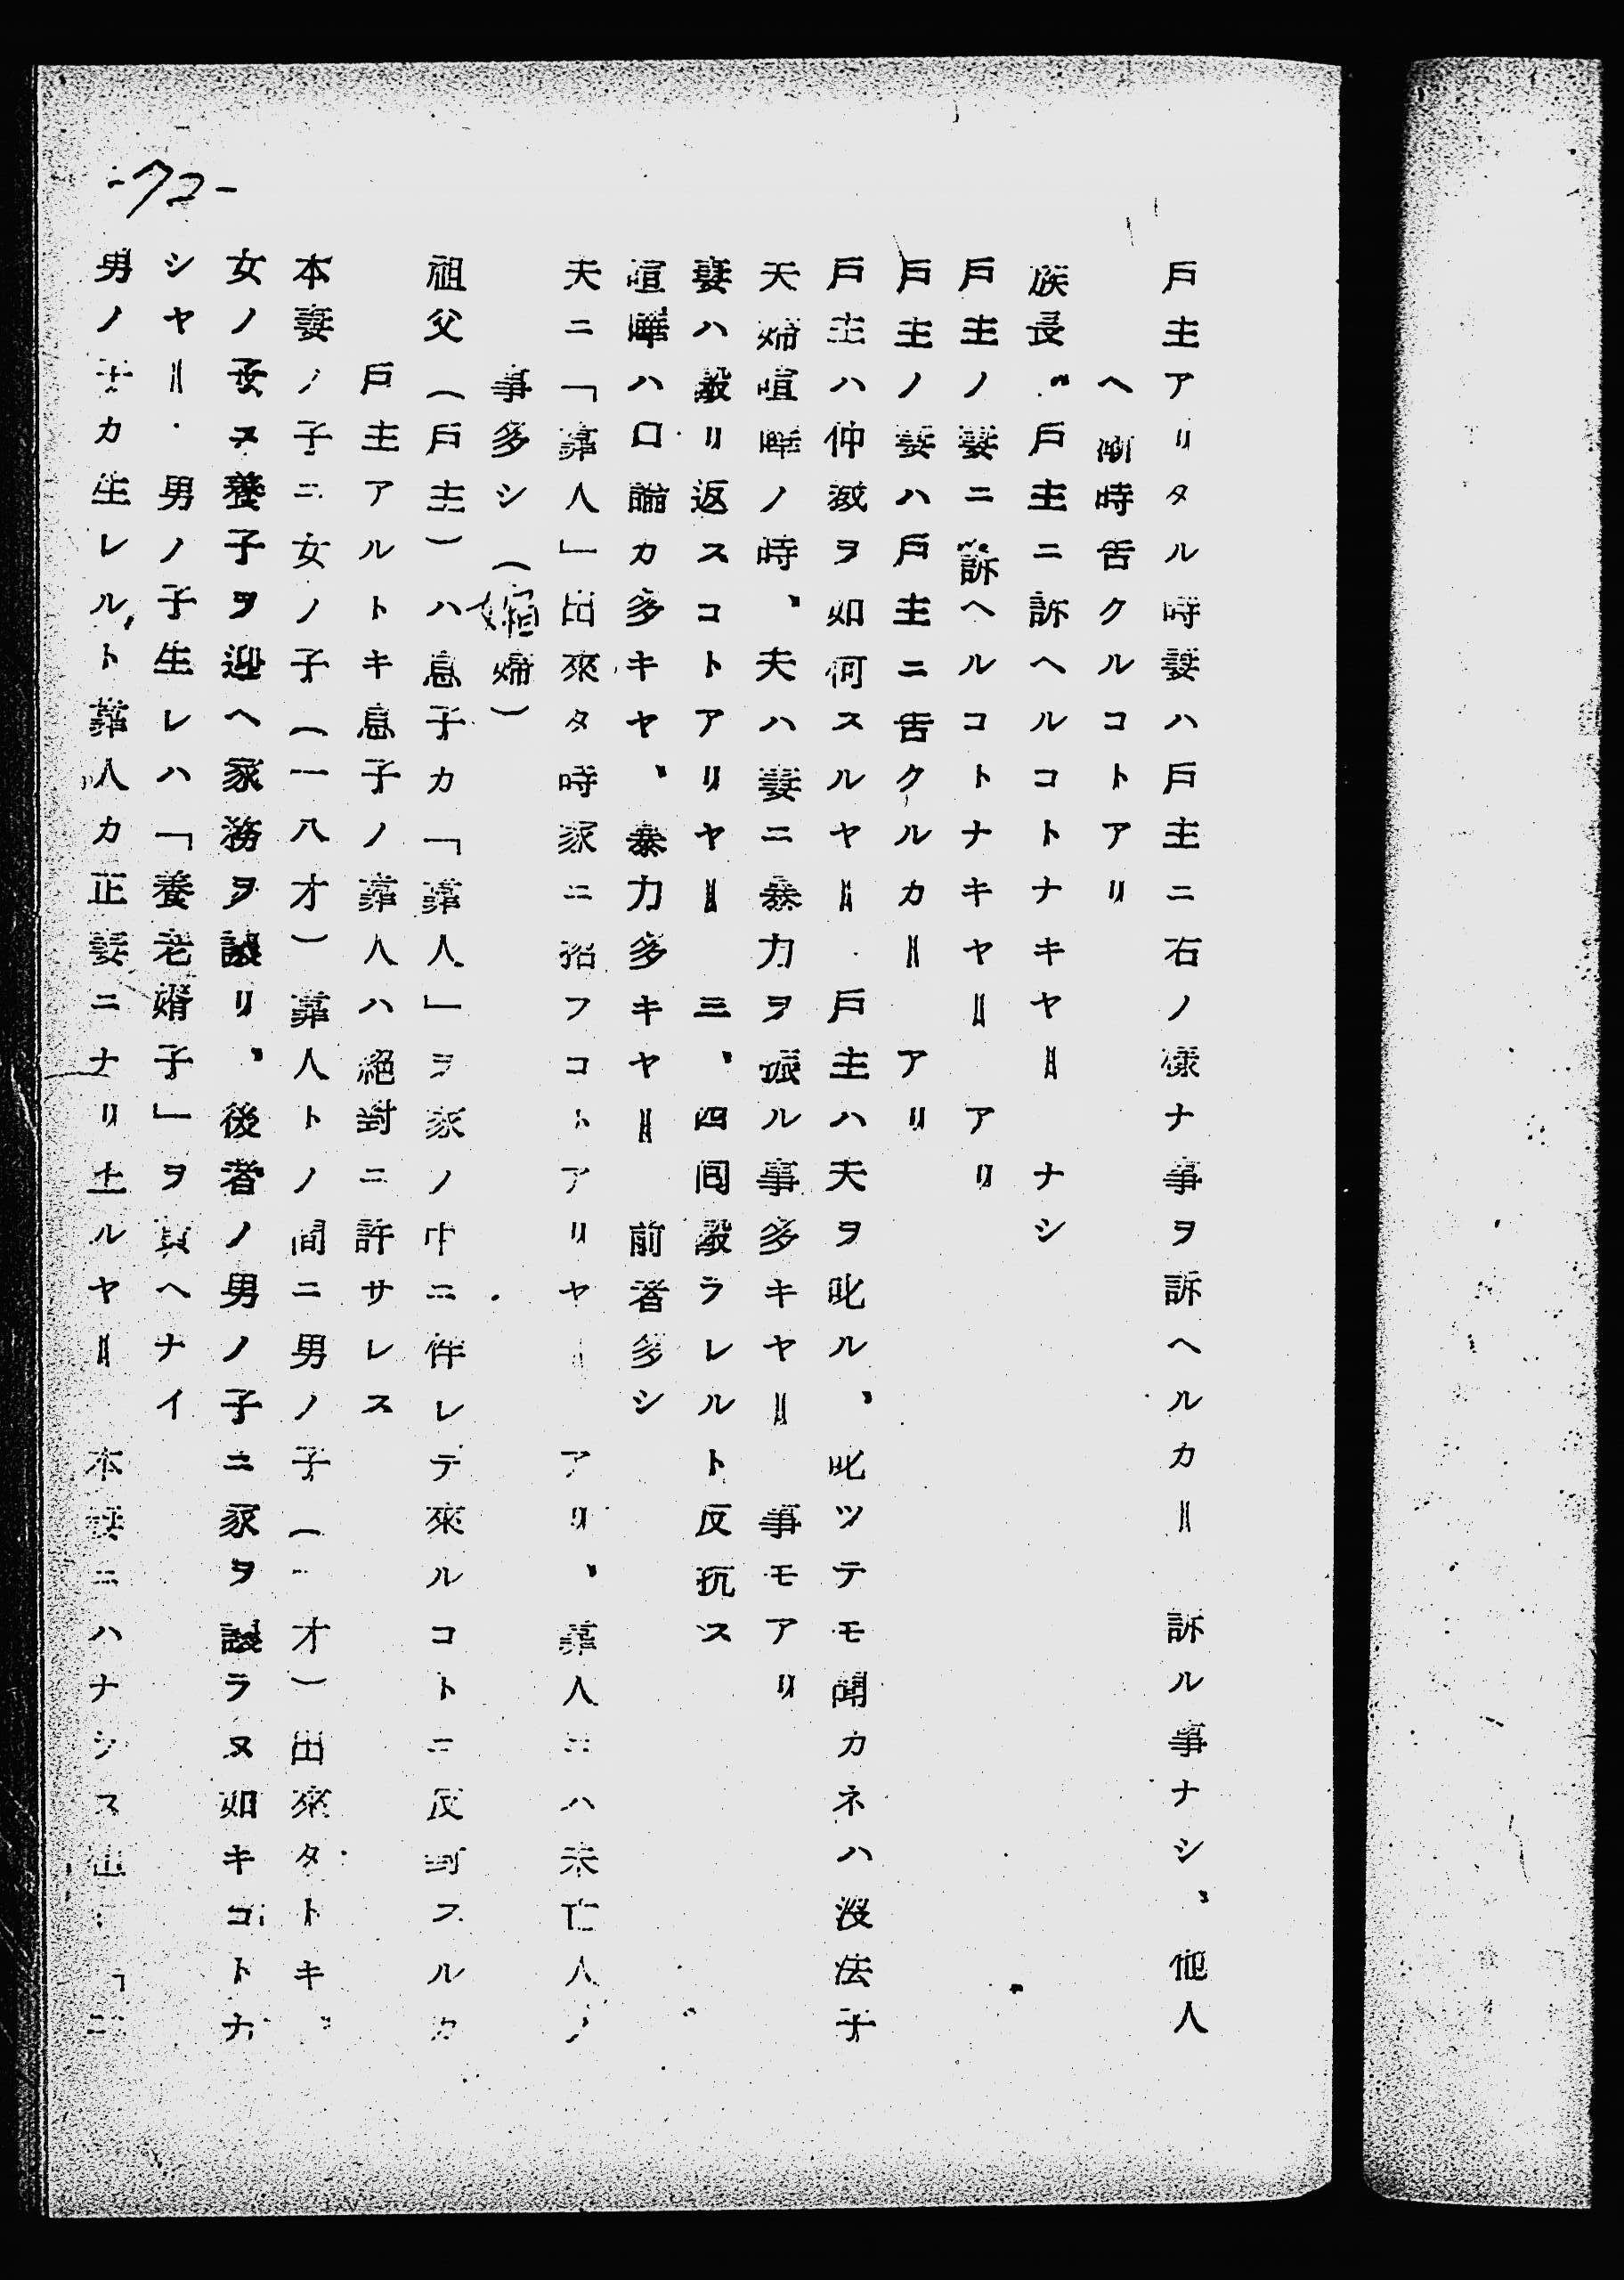 -72-
戸主アリタル時妻ハ戸主ニ右ノ樣ナ事ヲ訴ヘルカ＝ 訴ル事ナシ、他人
ヘ 時告クルコトアリ
族長・戸主ニ訴ヘルコトナキヤ＝ ナシ
戸主ノ妻ニ訴ヘルコトナキヤ＝ アリ
戸主ノ妻ハ戸主ニ告クルカ＝ アリ
戸主ハ仲裁ヲ如何スルヤ＝ 戸主ハ夫ヲ叱ル、叱ツテモ聞カネハ沒法子
夫婦喧嘩ノ時、夫ハ妻ニ暴力ヲ振ル事多キヤ＝ 事モアリ
妻ハ毆リ返スコトアリヤ＝ 三、四囘毆ラレルト反抗ス
喧嘩ハ口論カ多キヤ、暴力多キヤ＝ 前者多シ
夫ニ「靠人」出來タ時家ニ招フコトアリヤ＝ アリ、靠人ニハ未亡人ノ
事多シ（孀婦）
祖父（戸主）ハ息子カ「靠人」ヲ家ノ中ニ伴レテ來ルコトニ反對スルカ
戸主アルトキ息子ノ靠人ハ絕對ニ許サレス
本妻ノ子ニ女ノ子（一八才）靠人トノ間ニ男ノ子（一才）出來タトキ、
女ノ子ス養子ヲ迎ヘ家務ヲ讓リ、後者ノ男ノ子ニ家ヲ讓ラヌ如キコトナ
シヤ＝・男ノ子生レハ「養老婿子」ヲ貰ヘナイ
男ノ子カ生レルト靠人カ正妻ニナリ士ルヤ＝ 本妻ニハナシス 「二